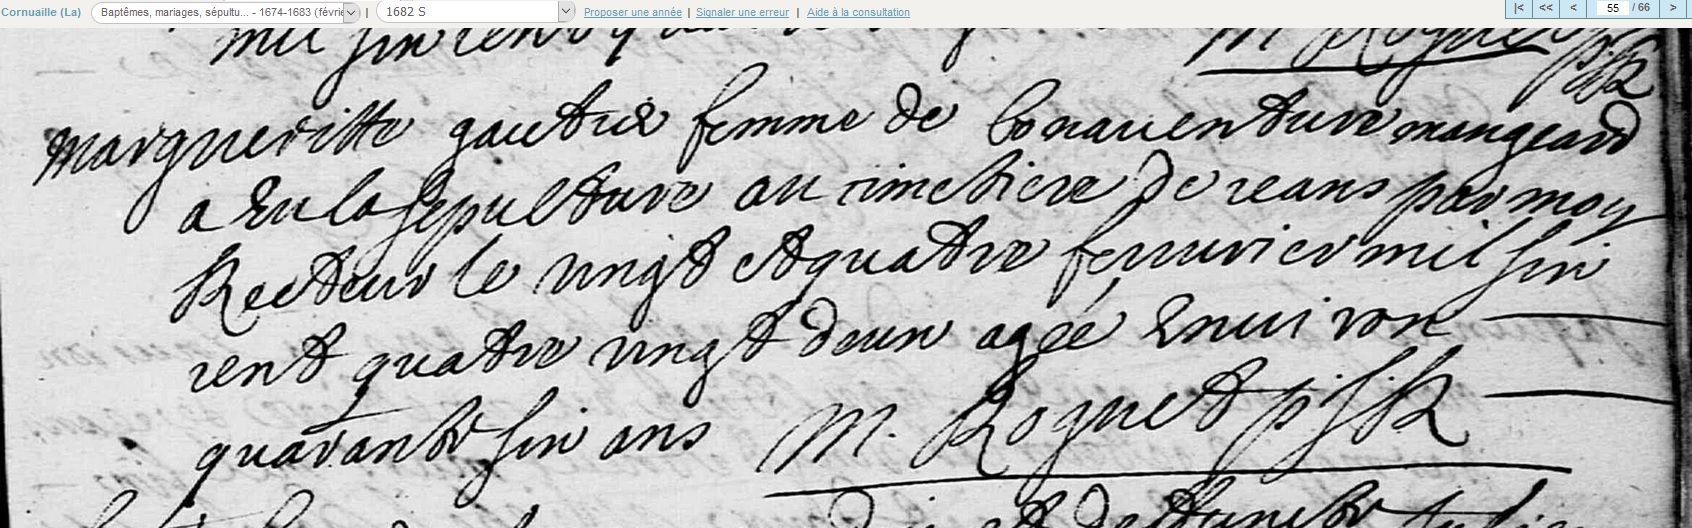 Cornuaille (La) Baptêmes, mariages, sépultu... - 1674-1683 (févrie | 1682 S Proposer une année | Signaler une erreur | Aide à la consultation |< << < 55 / 66 >
mil
M Roguet
margueritte gautier femme de bonauenture mangeard
a Eu la sepulture au cimetiere de ceans par moy
Recteur le vingt et quatre feruurier mil sin
cent quatre vingt deux agée Enuiron
quarante sin ans M. Roguet